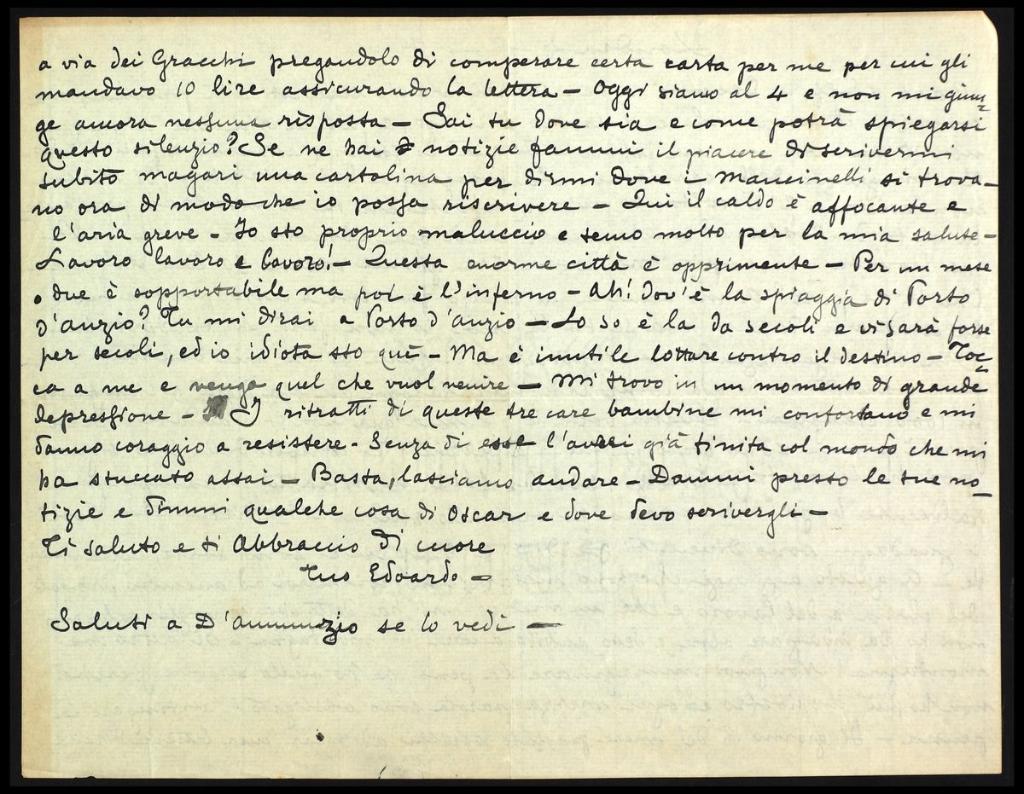 a via dei Gracchi pregandolo di comperare certa carta per me per cui gli
mandavo 10 lire assicurando la lettera – Oggi siamo al 4 e non mi giun-
ge ancora nessuna risposta – Sai tu dove sia e come potrà spiegarsi
questo silenzio? Se ne hai notizie fammi il piacere di scrivermi
subito magari una cartolina per dirmi dove i Mancinelli si trova-
no ora di modo che io possa riscrivere – Qui il caldo è affocante e
l'aria greve – Io sto proprio maluccio e temo molto per la mia salute –
Lavoro lavoro e lavoro! – Questa enorme città è opprimente – Per un mese
o due è sopportabile ma poi è l'inferno – Ah! dov'è la spiaggia di Porto
d'anzio? Tu mi dirai a Porto d'anzio – Lo so è la da secoli e vi sarà forse
per secoli, ed io idiota sto quì – Ma è inutile lottare contro il destino – Toc-
ca a me e venga quel che vuol venire – Mi trovo in un momento di grande
depressione – I ritratti di queste tre care bambine mi confortano e mi
danno coraggio a resistere – Senza di esse l'avrei già finita col mondo che mi
ha stuccato assai – Basta, lasciamo andare – Dammi presto le tue no-
tizie e dimmi qualche cosa di Oscar e dove devo scrivergli –
Ti saluto e ti abbraccio di cuore
Tuo Edoardo –
Saluti a D'annunzio se lo vedi –